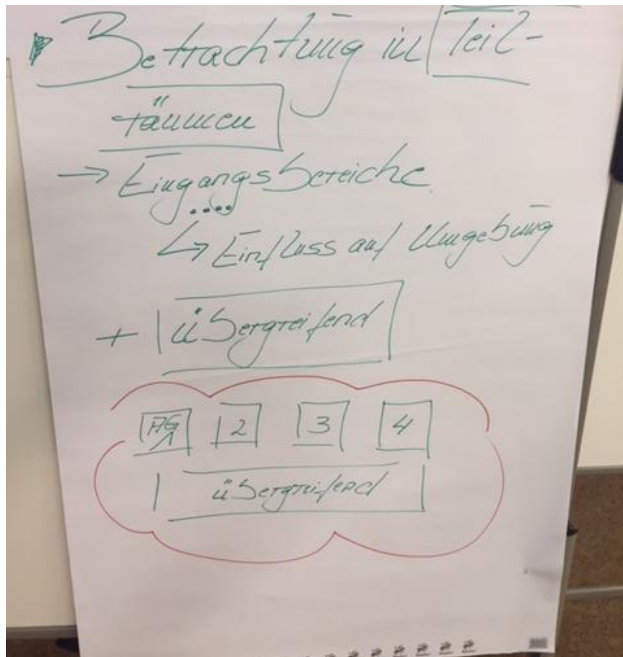 Betrachtung in Teil-
räumen
→ Eingangsbereiche
....
↳ Einfluss auf Umgebung
+ übergreifend
AG 1 2 3 4
übergreifend